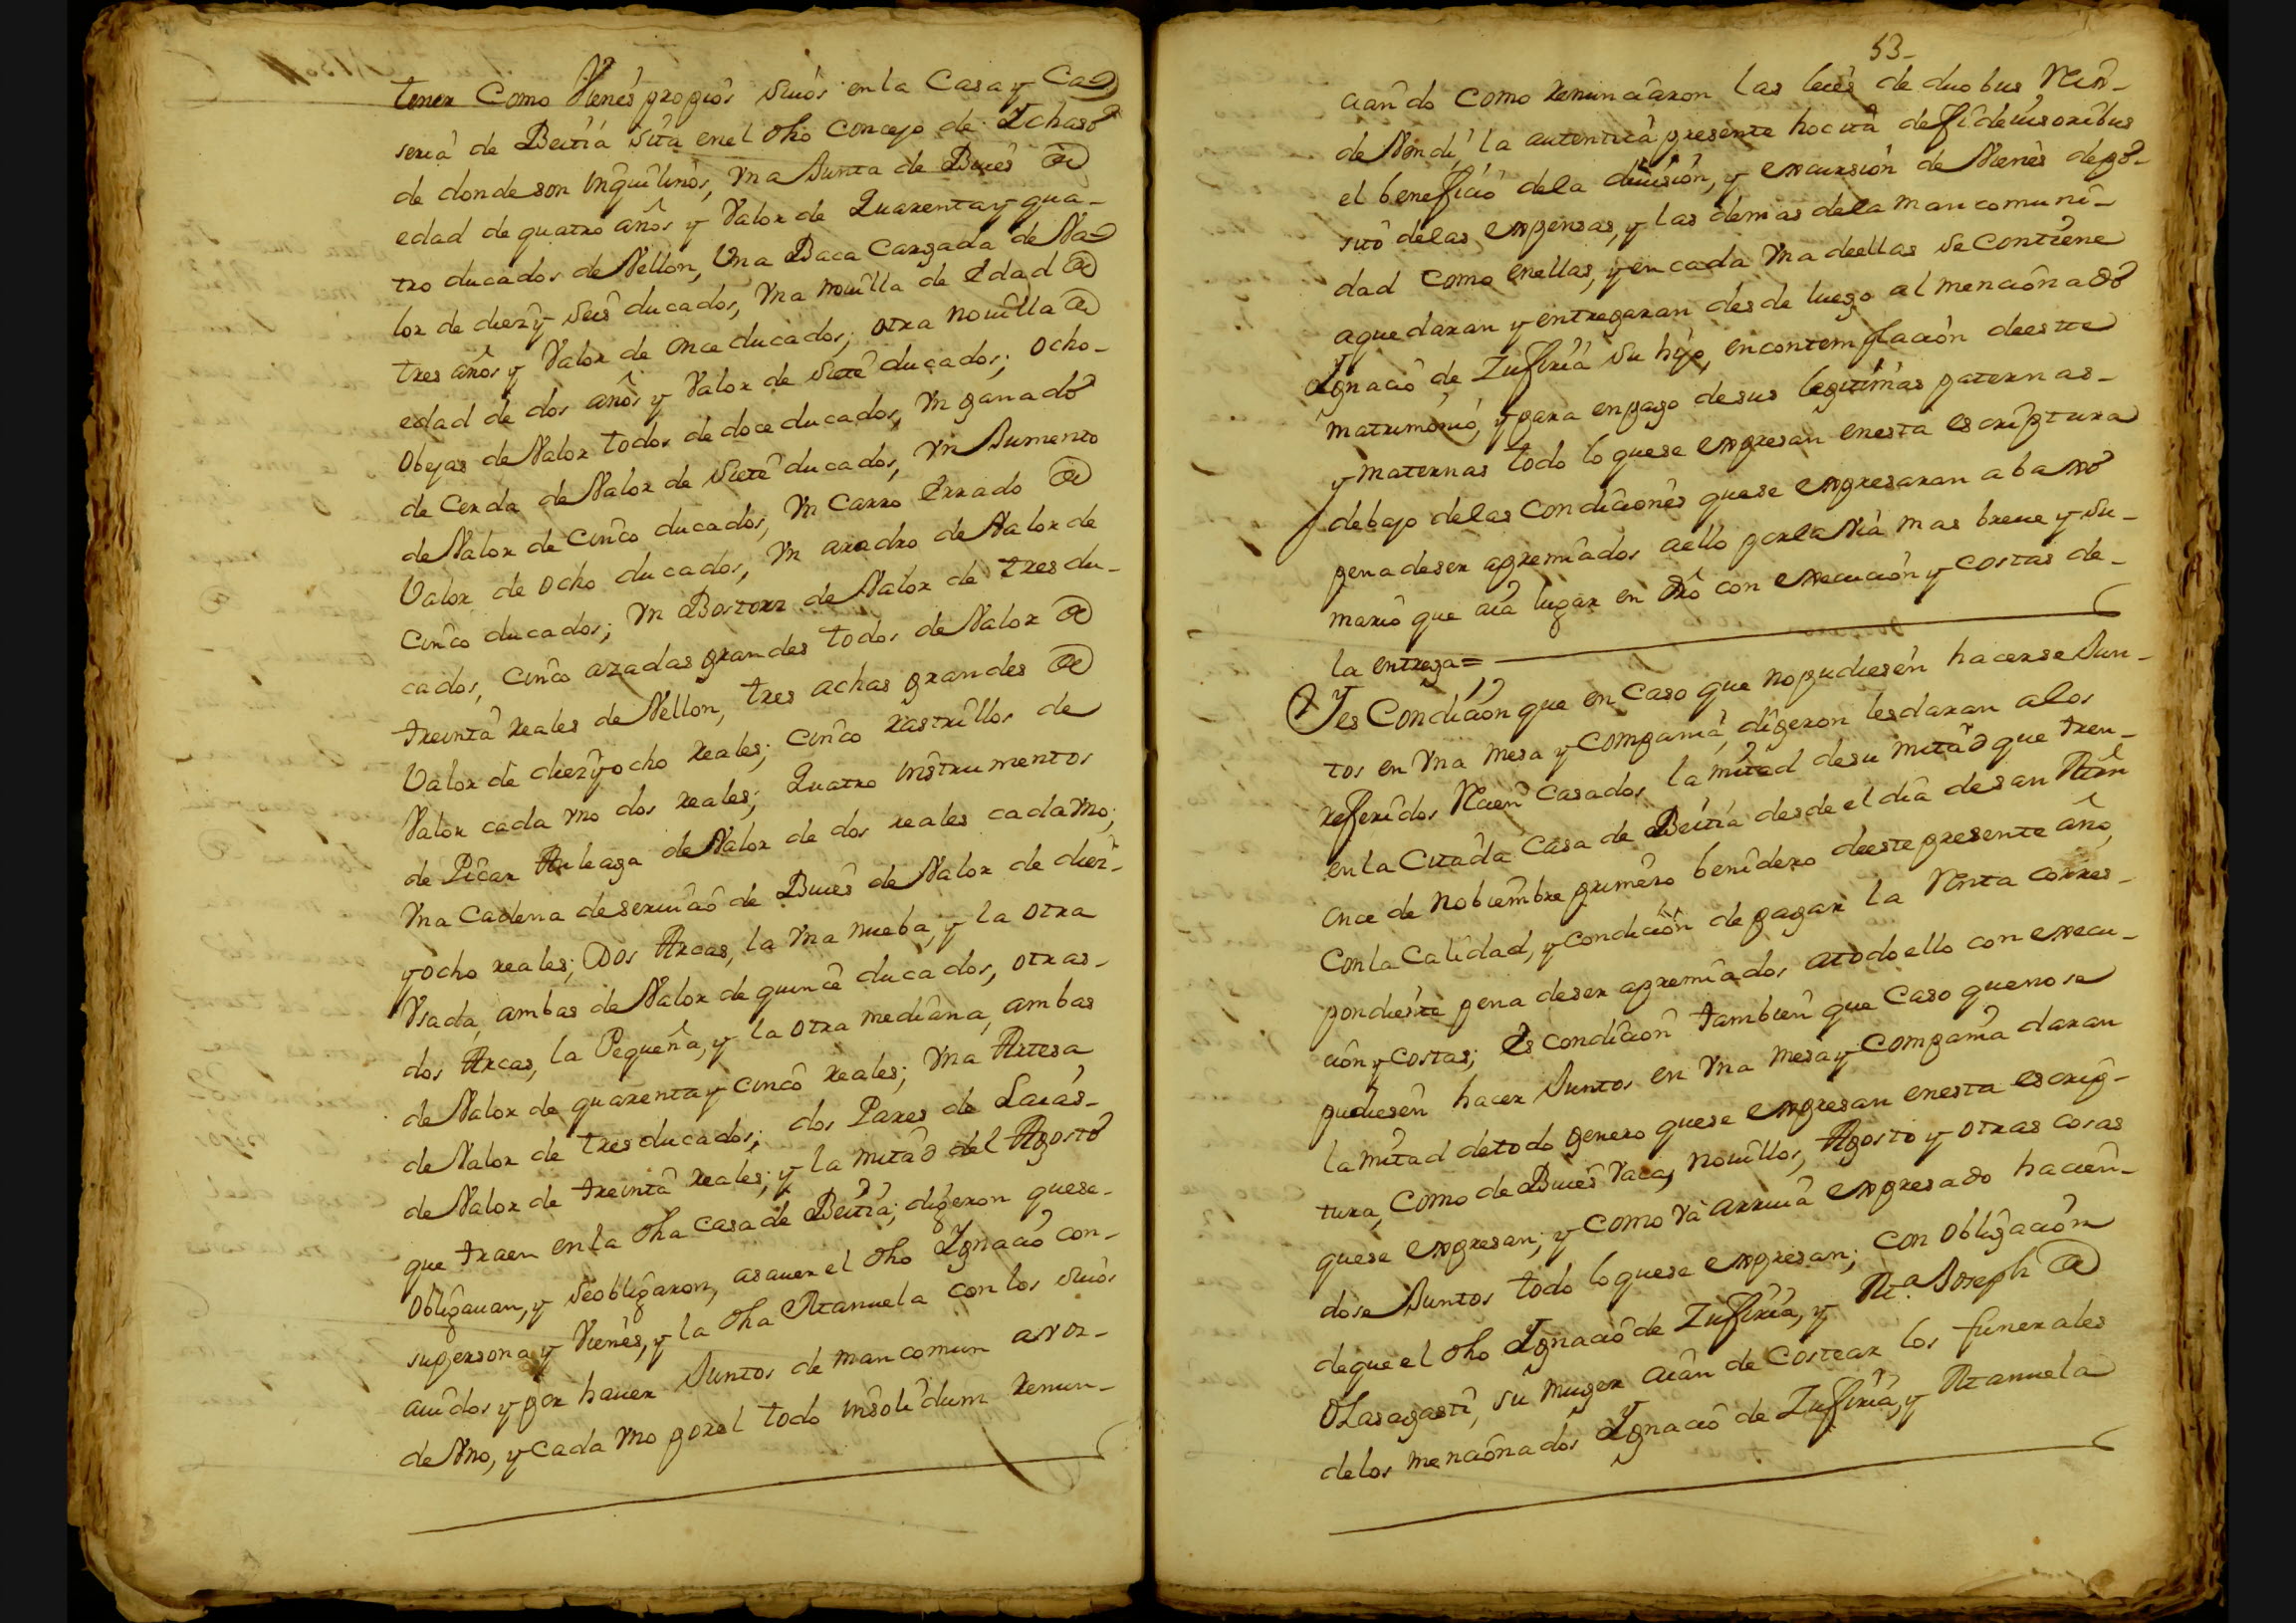 tener Como Vienes propios suios en la Casa y Ca
seria de Beitia sita en el dho concejo de Ychaso
de donde son inquilinos, vna Junta de Bues de
edad de quatro años y Valor de Quarenta y qua-
tro ducados de Vellon, Vna Baca Cargada de Va
lor de diez y seis ducados, vna nouilla de Edad de
tres años y Valor de once ducados; otra nouilla de
edad de dos años y Valor de siete ducados; ocho-
Obejas de Valor todos de doce ducados, vn ganado
de Cerda de Valor de siete ducados, vn Jumento
de Valor de cinco ducados; vn Carro Errado de
Valor de ocho ducados, vn aradro de Valor de
cinco ducados; vn Bostorz de Valor de tres du-
cados, cinco azadas grandes todos de Valor de
treinta reales de Vellon, tres achas grandes de
Valor de diez y ocho reales; cinco rastrillos de
Valor cada vno dos reales; Quatro instrumentos
de Picar Arleaga de Valor de dos reales cada vno;
vna Cadena de seruicio de Bues de Valor de diez-
y ocho reales; Dos Arcas, la vna nueba, y la otra
Vsada, ambas de Valor de quince ducados, otras-
dos Arcas, la Pequeña, y la otra mediana, ambas
de Valor de quarenta y cinco reales; vna Artesa
de Valor de tres ducados; dos Pares de Laias-
de Valor de treinta reales; y la mitad del Agosto
que traen en la dha casa de Beitia; digeron que se-
Obligauan, y se obligaron, asauer el dho Ygnacio con-
su persona y Vienes, y la dha Manuela con los suios
auidos y por hauer Juntos de mancomun a voz-
de Vno, y cada vno por el todo insolidum renun-
53-
ciando como renunciaron las leies de duobus Reis-
de Vendi, la autentica presente hocita de fideiusoribus
el beneficio de la diuision, y excursion de Vienes depo-
sito de las expensas, y las demas de la mancomuni-
dad como en ellas, y en cada vna de ellas se contiene
a que daran y entregaran desde luego al mencionado
Ygnacio de Zufiria su hijo, en contemplacion de este
matrimonio, y para en pago de sus legitimas paternas-
y maternas todo lo que se expresan en esta escriptura
debajo de las condiciones que se expresaran abaxo
pena de ser apremiados a ello por la Via mas breue y su-
mario que aia lugar en dro con execucion y costas de-
la entrega=
Y es Condicion que en caso que no pudiesen hacerse Jun-
tos en vna mesa y compania, digeron les daran a los
referidos Recien casados la mitad de su mitad que tien-
en la Citada Casa de Beitia desde el dia de san Mrn
once de nobiembre primero benidero de este presente año,
con la Calidad, y condicion de pagar la Renta corres-
pondiente pena de ser apremiados a todo ello con execu-
cion y costas; Es condicion tambien que caso que no se
pudiesen hacer Juntos en vna mesa y compania daran
la mitad de todo genero que se expresan en esta escrip-
tura, Como de Bues Vacas, nouillos, Agosto y otras cosas
que se expresan; y como va arriua expresado hacien-
dose Juntos todo lo que se expresan; con obligacion
de que el dho Ygnacio de Zufiria, y Ma. Joseph de
Olasagasti, su muger aian de costear los funerales
de los mencionados Ygnacio de Zufiria, y Manuela